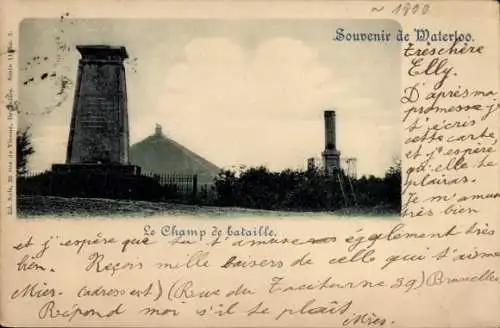 ~ 1900
Souvenir de Waterloo.
Treschère
Elly.
D'après ma
promesse j'
écris
cette carte,
et j'espère
qu'elle te
plairas.
Je m'amuse
très bien
Le Champ de bataille.
et j'espère que tu t'amuse également très
bien. Reçois mille baisers de celle qui t'aime
Mies. (adresse est) (Rue du Taciturne 39) (Bruxelles
Repond moi s'il te plaît Mies.